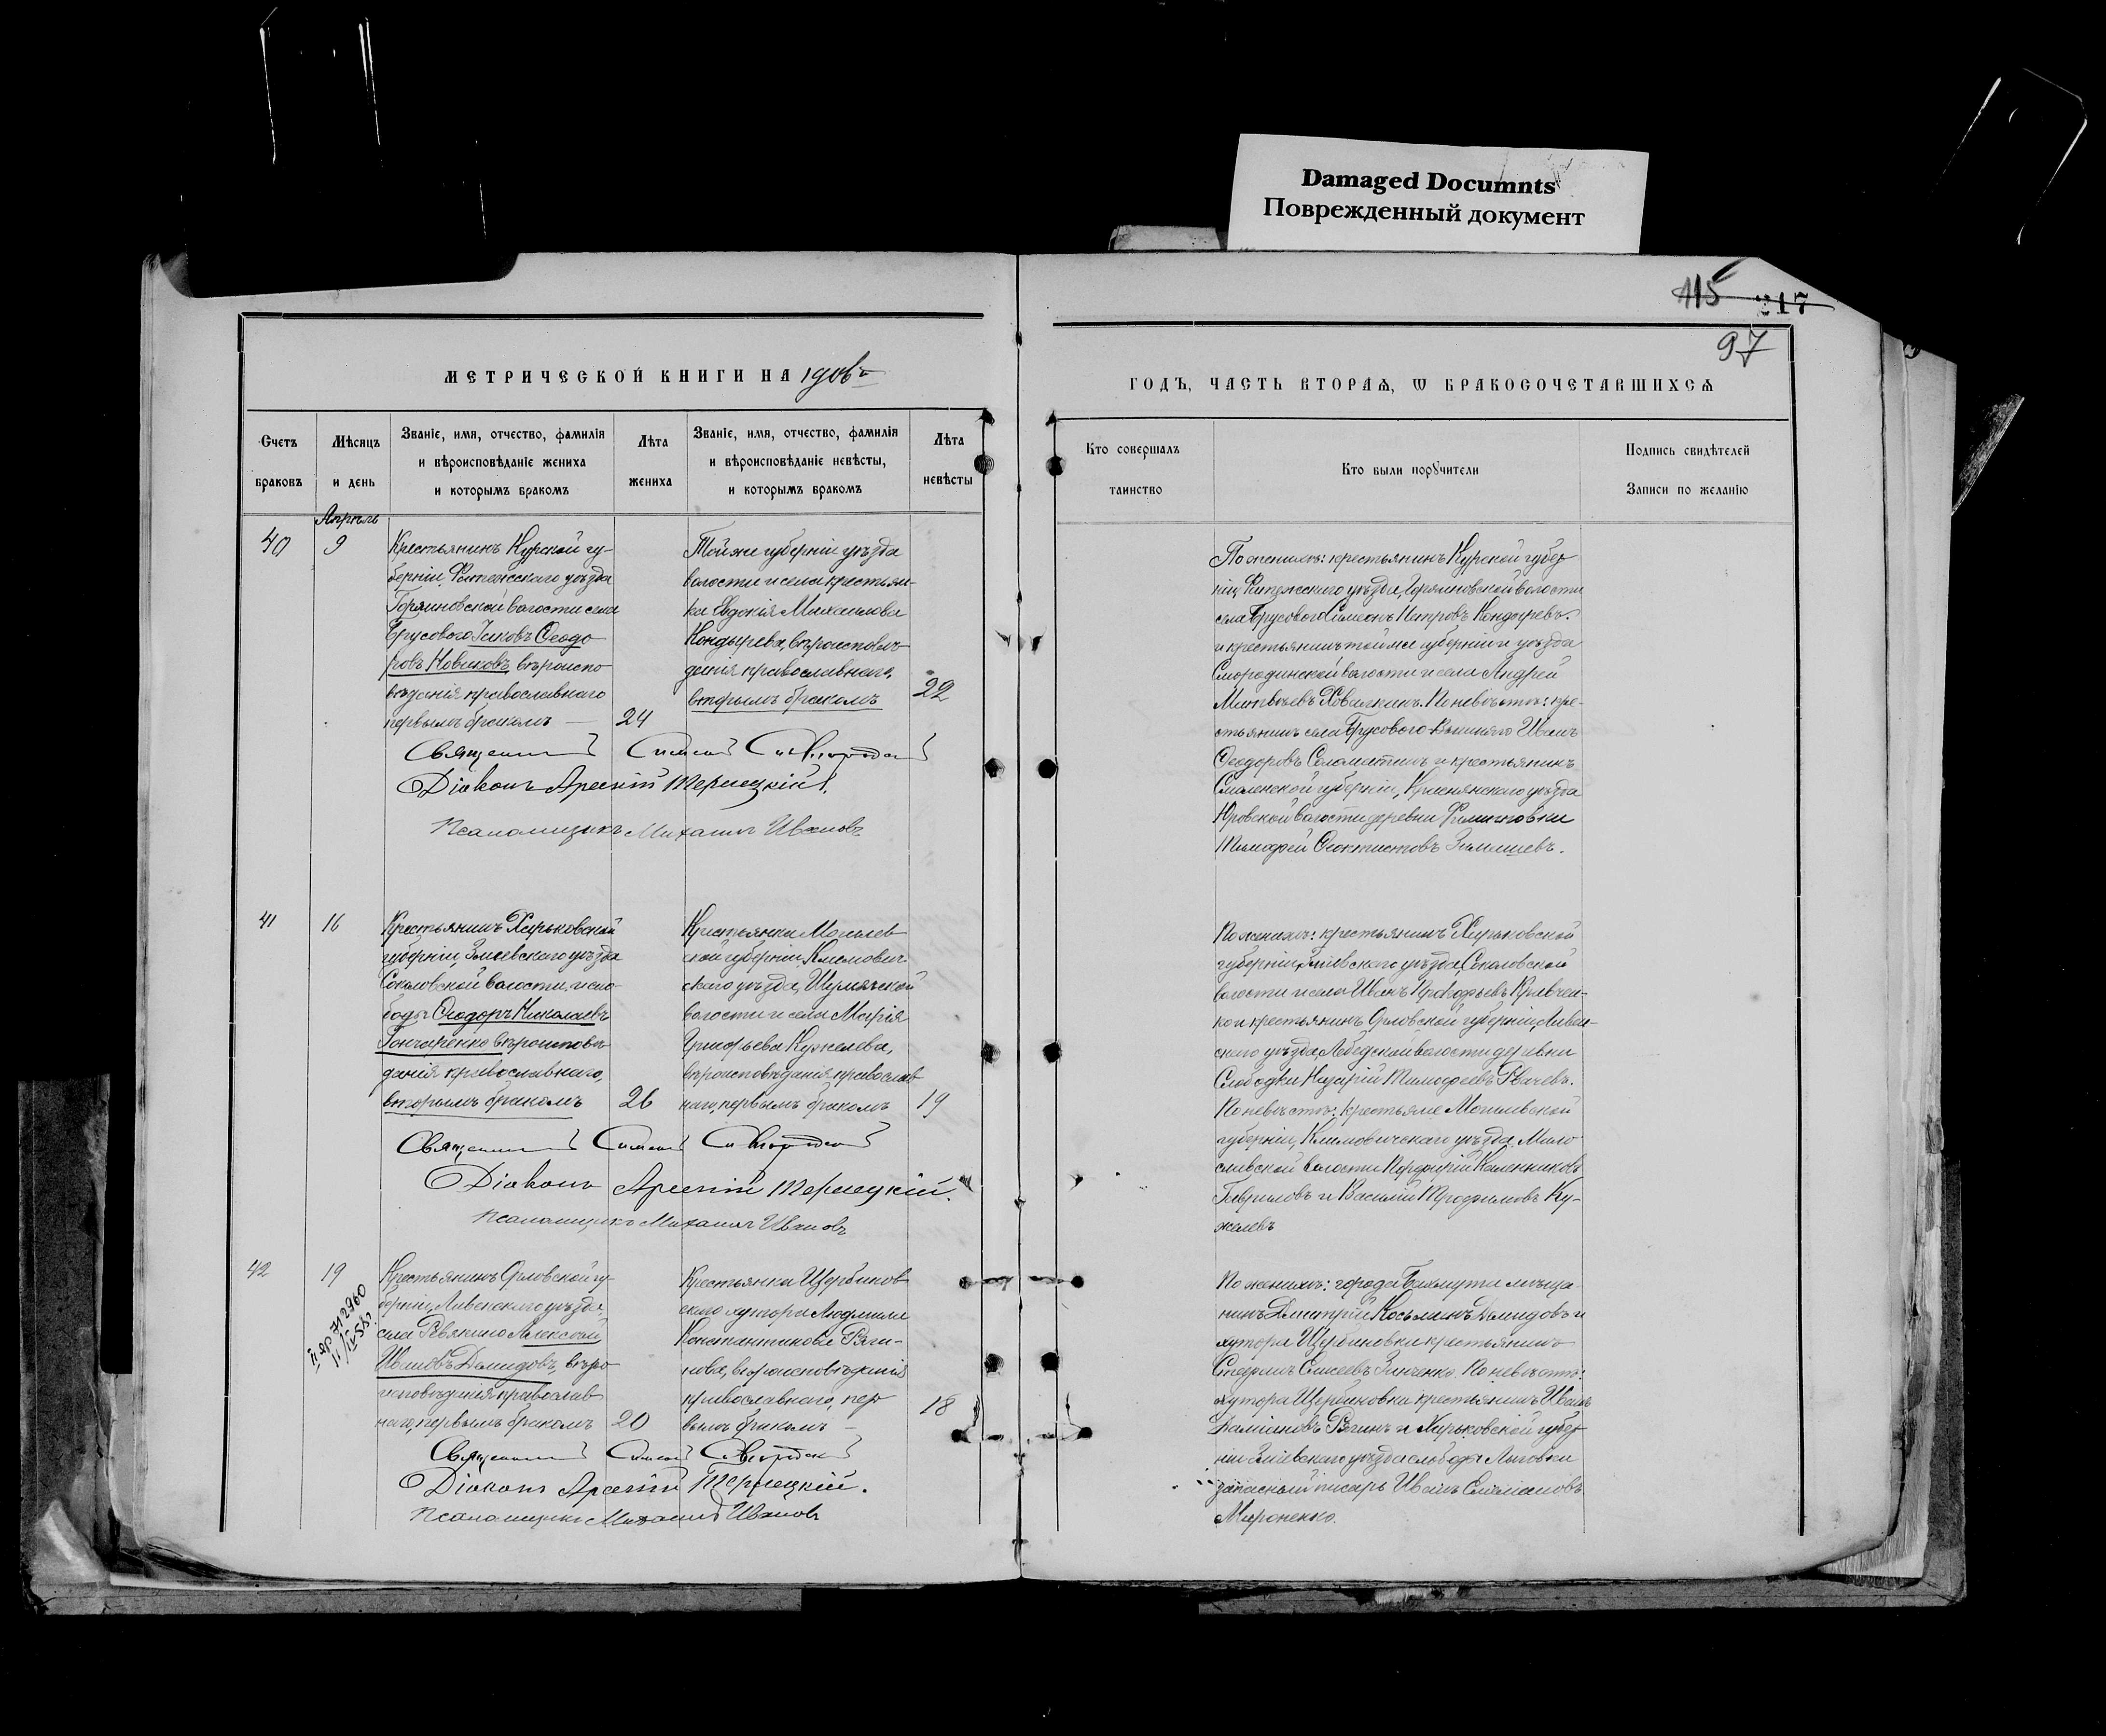 Damaged Documnts
Поврежденный документ
115 217
97
МЕТРИЧЕСКОЙ КНИГИ НА 1906й
ГОДЪ, ЧАСТЬ ВТОРАѦ, Ѡ БРАКОСОЧЕТАВШИХСѦ
Счетъ браковъ
Мѣсяцъ и день
Званіе, имя, отчество, фамилія и вѣроисповѣданіе жениха и которымъ бракомъ
Лѣта жениха
Званіе, имя, отчество, фамилія и вѣроисповѣданіе невѣсты, и которымъ бракомъ
Лѣта невѣсты
Кто совершалъ таинство
Кто были поручители
Подпись свидѣтелей Записи по желанію
Апрѣль
40
9
Крестьянинъ Курской гу-
берніи, Фатежскаго уѣзда
волости села
Брусового Іаковъ Ѳеодо
ровъ Новиковъ, вѣроиспо
вѣданія православнаго
первымъ бракомъ —
24
Тойже губерніи уѣзда
волости и села крестьян-
ка Евдокія Михаилова
Кондырева, вѣроисповѣ-
данія православнаго,
вторымъ бракомъ
22
Священникъ Симеонъ
Діаконъ Арсеній Терлецкій.
Псаломщикъ Михаилъ Ивановъ
По женихѣ: крестьянинъ Курской губер
ніи, Фатежскаго уѣзда, волости
села Брусового Симеонъ Петровъ Кондыревъ.
и крестьянинъ тойже губерніи и уѣзда
Смородинской волости и села Андрей
По невѣстѣ: кре-
стьянинъ села Брусового Иванъ
Ѳеодоровъ и крестьянинъ
Смоленской губерніи, Краснянскаго уѣзда
волости деревни
Тимофей Ѳеоктистовъ
41
16
Крестьянинъ Харьковской
губерніи, Зміевскаго уѣзда
Соколовской волости, и сло-
боды Ѳеодоръ Николаевъ
Гончаренко вѣроисповѣ-
данія православнаго,
вторымъ бракомъ
26
Крестьянка Могилев
ской губерніи, Климович-
скаго уѣзда, Шумячской
волости и села Марія
Григорьева Кужелева,
вѣроисповѣданія православ
наго, первымъ бракомъ
19
Священникъ Симеонъ
Діаконъ Арсеній Терлецкій.
Псаломщикъ Михаилъ Ивановъ
По женихѣ: крестьянинъ Харьковской
губерніи, Зміевскаго уѣзда, Соколовской
волости и села Иванъ Прокофьевъ Кривчен-
ко и крестьянинъ Орловской губерніи, Ливен-
скаго уѣзда, волости деревни
Слободки Назарій Тимофеевъ
По невѣстѣ: крестьяне Могилевской
губерніи, Климовичскаго уѣзда, Мило
славской волости Порфирій Каленниковъ
Гавриловъ и Василій Трофимовъ Ку-
желевъ
42
19
Крестьянинъ Орловской гу-
берніи, Ливенскаго уѣзда,
села Алексѣй
Ивановъ Демидовъ, вѣро
исповѣданія православ
наго, первымъ бракомъ
20
Крестьянка Щербинов
скаго хутора Людмила
Константинова Ряги-
нова, вѣроисповѣданія
православнаго, пер
вымъ бракомъ —
18
Священникъ Симеонъ
Діаконъ Арсеній Терлецкій.
Псаломщикъ Михаилъ Ивановъ
По женихѣ: города Бахмута мѣща-
нинъ Дмитрій Косьминъ Демидовъ и
хутора Щербиновки крестьянинъ
Елисеевъ Зинченко. По невѣстѣ:
хутора Щербиновки крестьянинъ Иванъ
Даміановъ и Харьковской губер
ніи Зміевскаго уѣзда слободы Лиговки
запасный писарь Иванъ
Мироненко.